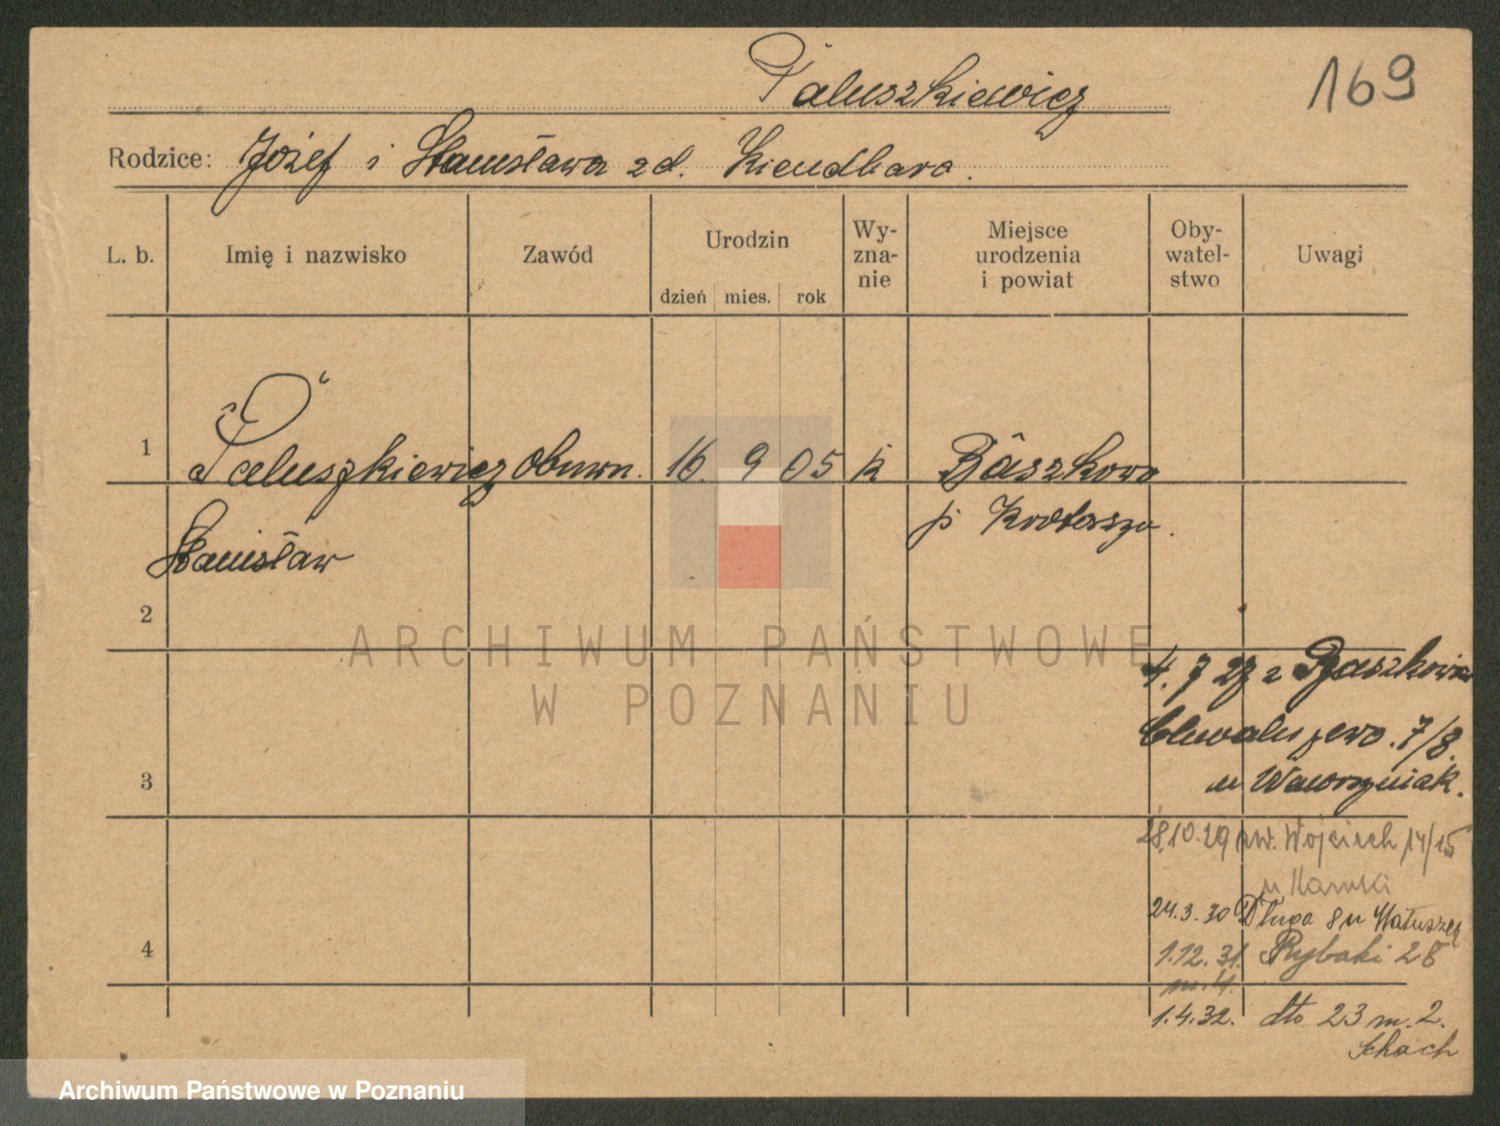 Paluszkiewicz
169
Rodzice: Józef i Stanisława zd.
L. b.
Imię i nazwisko
Zawód
Urodzin
dzień mies. rok
Wy-
zna-
nie
Miejsce
urodzenia
i powiat
Oby-
watel-
stwo
Uwagi
1 Paluszkiewicz 16. 9 05 k Baszkowo
Stanisław
p.
2
3
4
4. 7 27 z Baszkowa
7/8.
u Wawrzyniak.
28.10.29 św. Wojciech 14/15
u
24.3.30 Długa 8 u
1.12.31. Rybaki 28
m. 4.
1.4.32. dto 23 m. 2.
Schach
ARCHIWUM PAŃSTWOWE
W POZNANIU
Archiwum Państwowe w Poznaniu